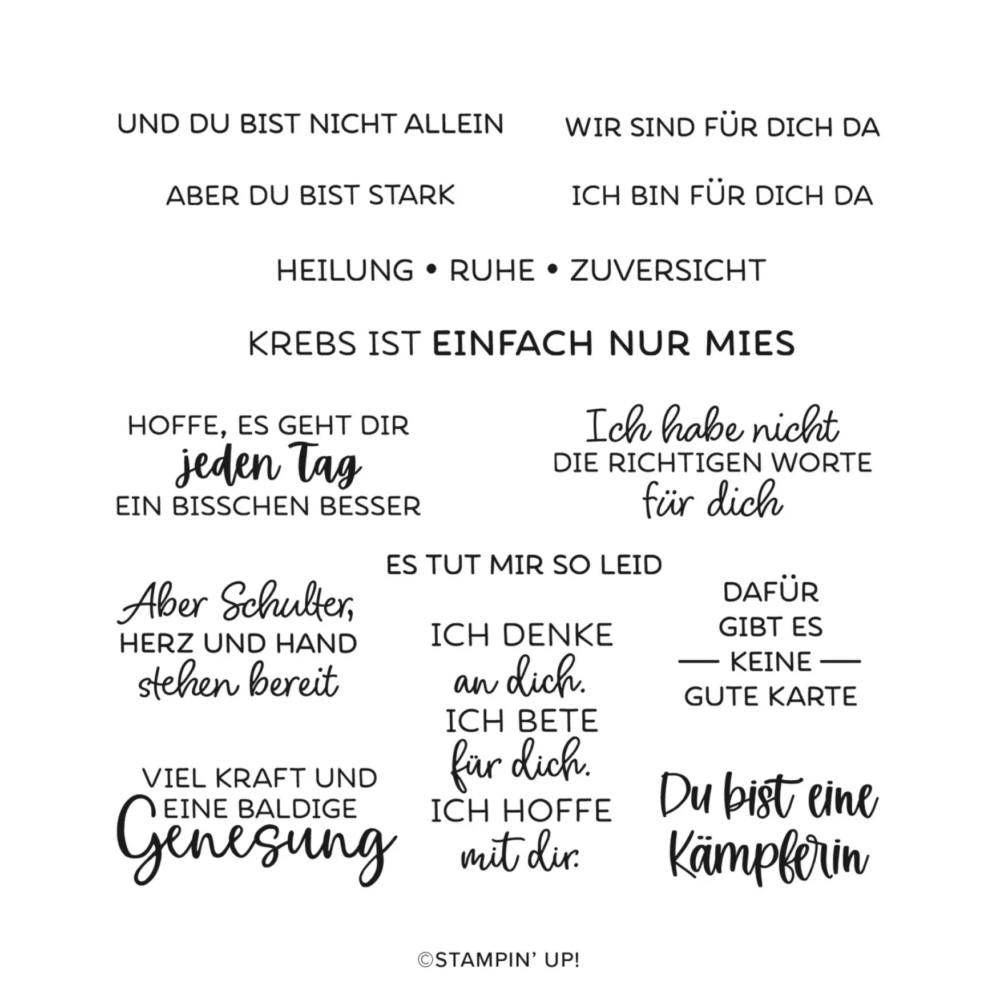 UND DU BIST NICHT ALLEIN
WIR SIND FÜR DICH DA
ABER DU BIST STARK
ICH BIN FÜR DICH DA
HEILUNG • RUHE • ZUVERSICHT
KREBS IST EINFACH NUR MIES
HOFFE, ES GEHT DIR
jeden Tag
EIN BISSCHEN BESSER
Ich habe nicht
DIE RICHTIGEN WORTE
für dich
ES TUT MIR SO LEID
Aber Schulter,
HERZ UND HAND
stehen bereit
ICH DENKE
an dich.
ICH BETE
für dich.
ICH HOFFE
mit dir.
DAFÜR
GIBT ES
— KEINE —
GUTE KARTE
VIEL KRAFT UND
EINE BALDIGE
Genesung
Du bist eine
Kämpferin
©STAMPIN' UP!